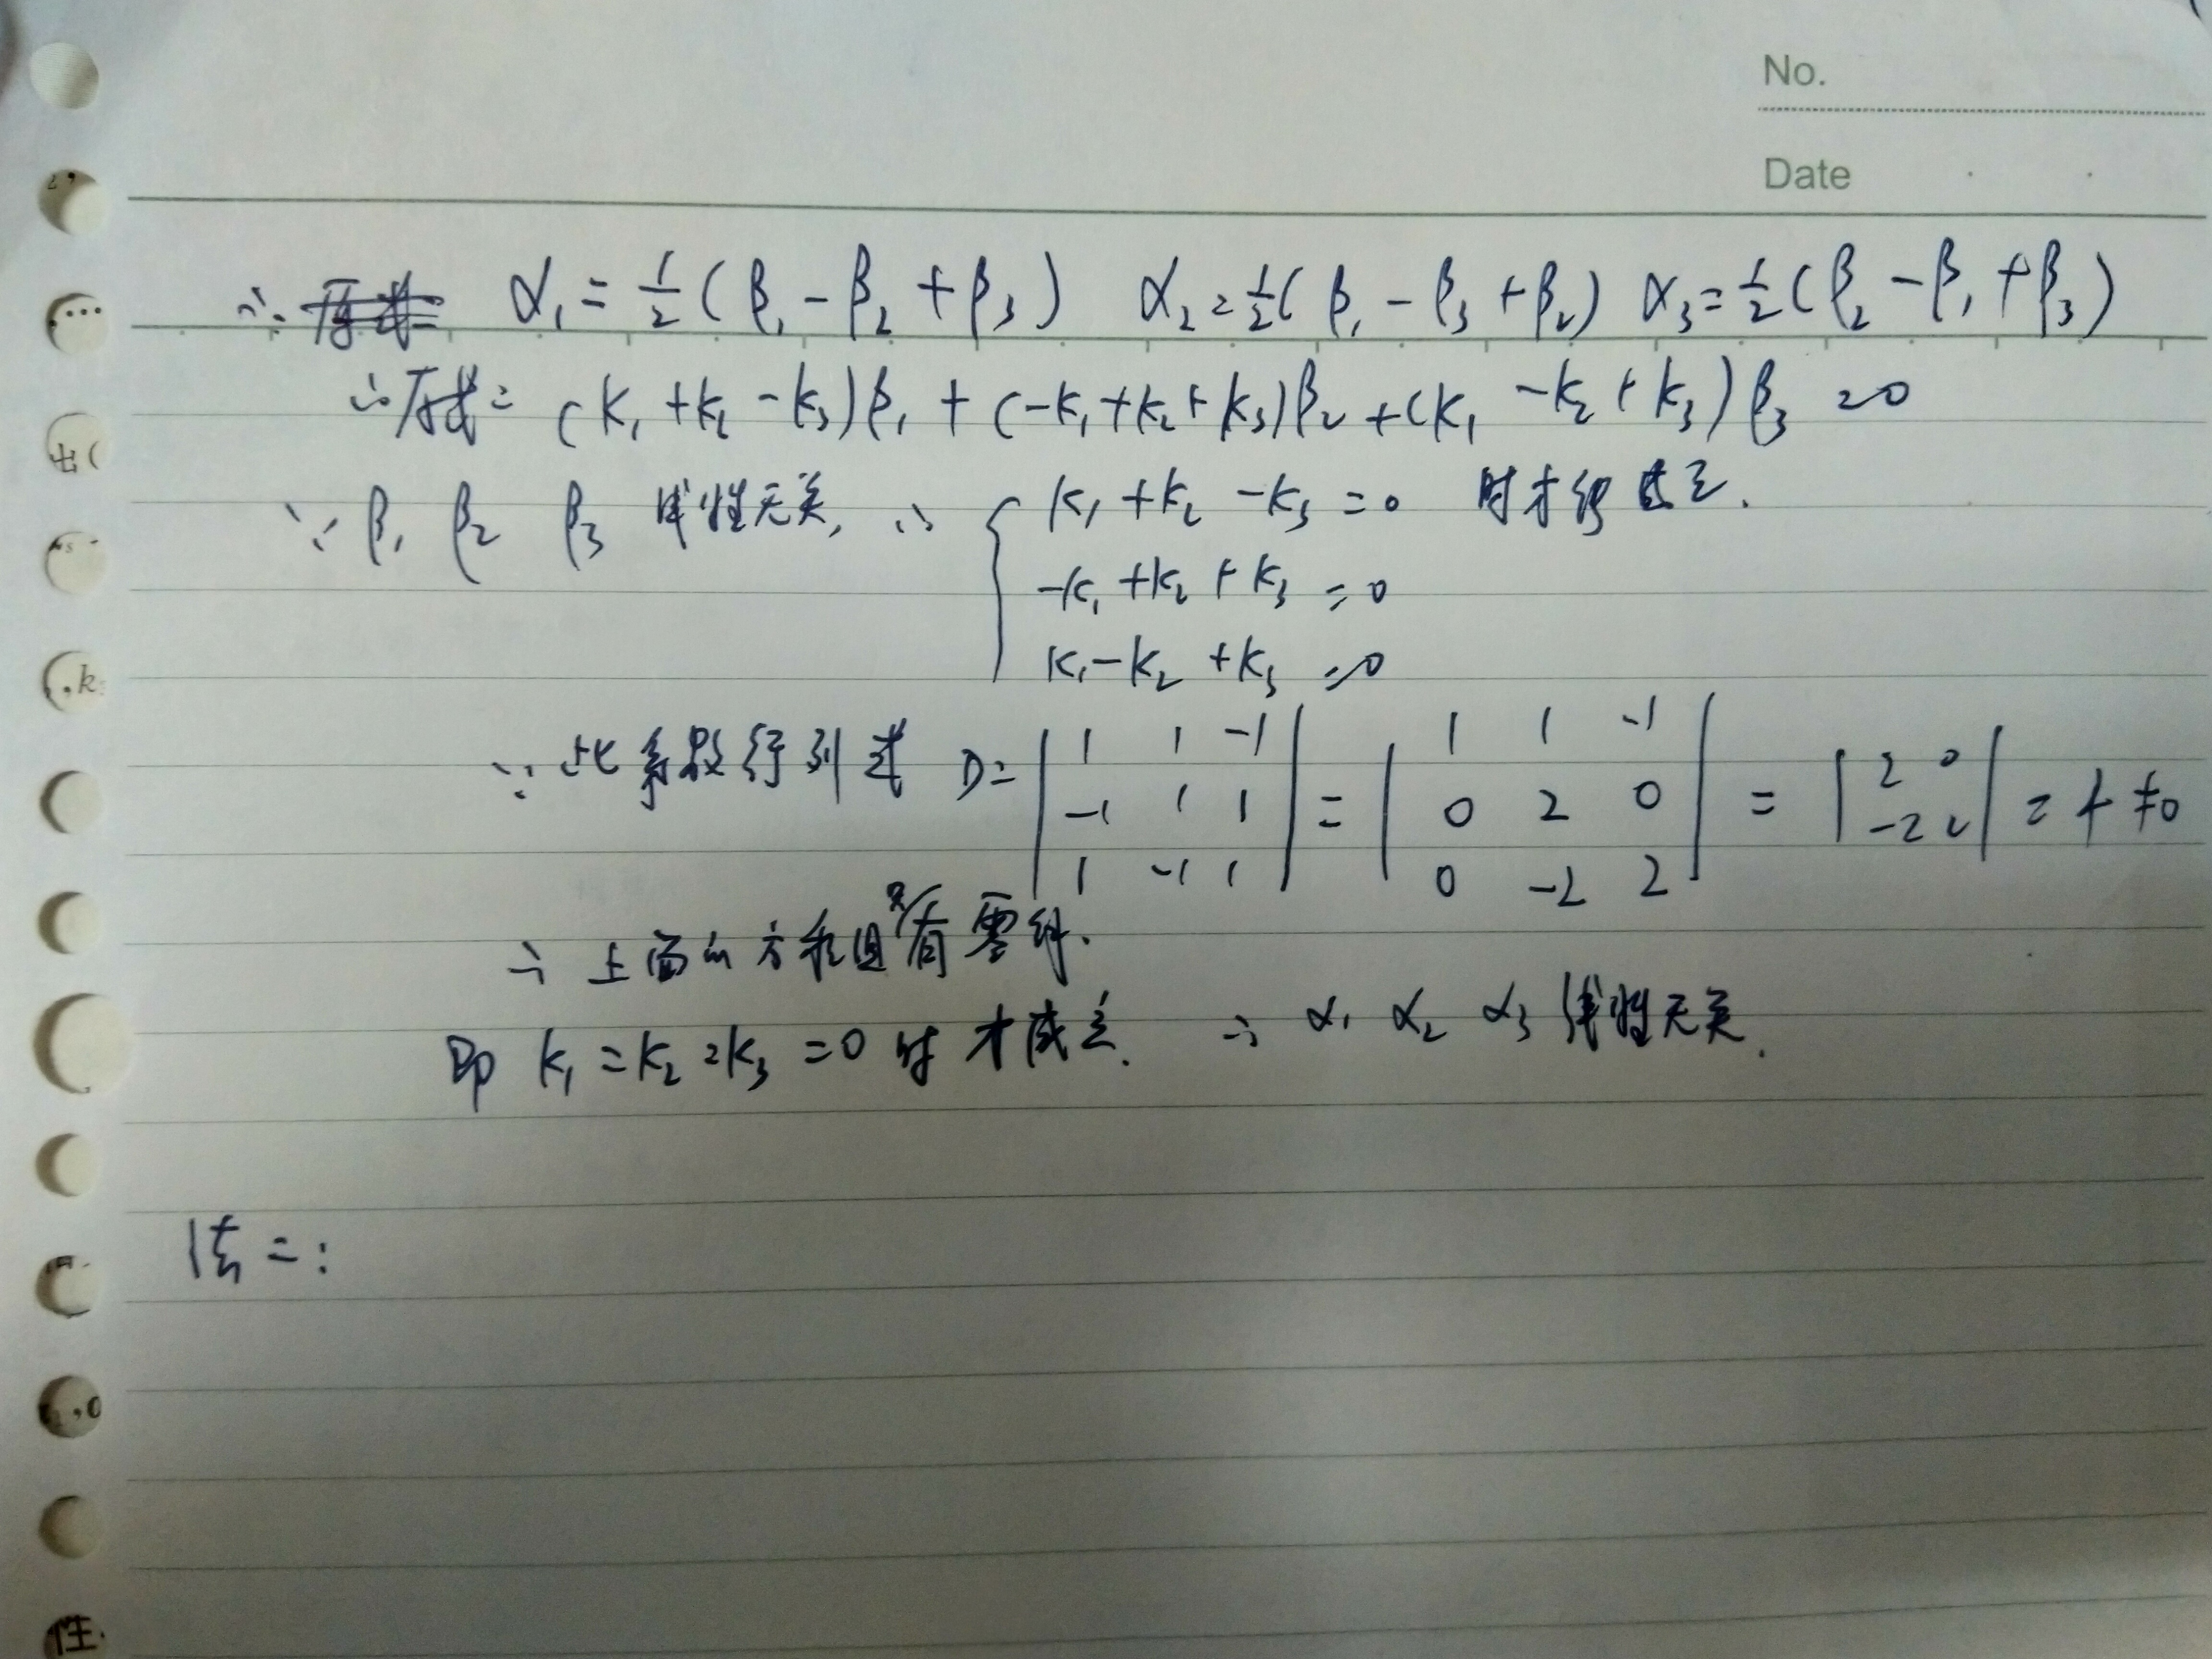 No.
Date
∴ α₁ = ½(β₁ - β₂ + β₃) α₂ = ½(β₁ - β₃ + β₂) α₃ = ½(β₂ - β₁ + β₃)
∴ 原式 = (k₁ + k₂ - k₃)β₁ + (-k₁ + k₂ + k₃)β₂ + (k₁ - k₂ + k₃)β₃ = 0
∵ β₁ β₂ β₃ 线性无关, ∴ { k₁ + k₂ - k₃ = 0 时才能成立.
-k₁ + k₂ + k₃ = 0
k₁ - k₂ + k₃ = 0
∵ 此系数行列式 D = | 1 1 -1 | = | 1 1 -1 | = | 2 0 | = 4 ≠ 0
| -1 1 1 | | 0 2 0 | | -2 2 |
| 1 -1 1 | | 0 -2 2 |
∴ 上面的方程组只有零解.
即 k₁ = k₂ = k₃ = 0 时才成立. ∴ α₁ α₂ α₃ 线性无关.
法二: